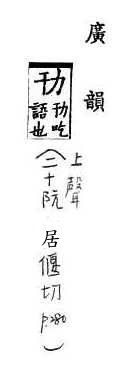 廣韻
吃
語也
上聲
(二十阮 居偃切 p.280)